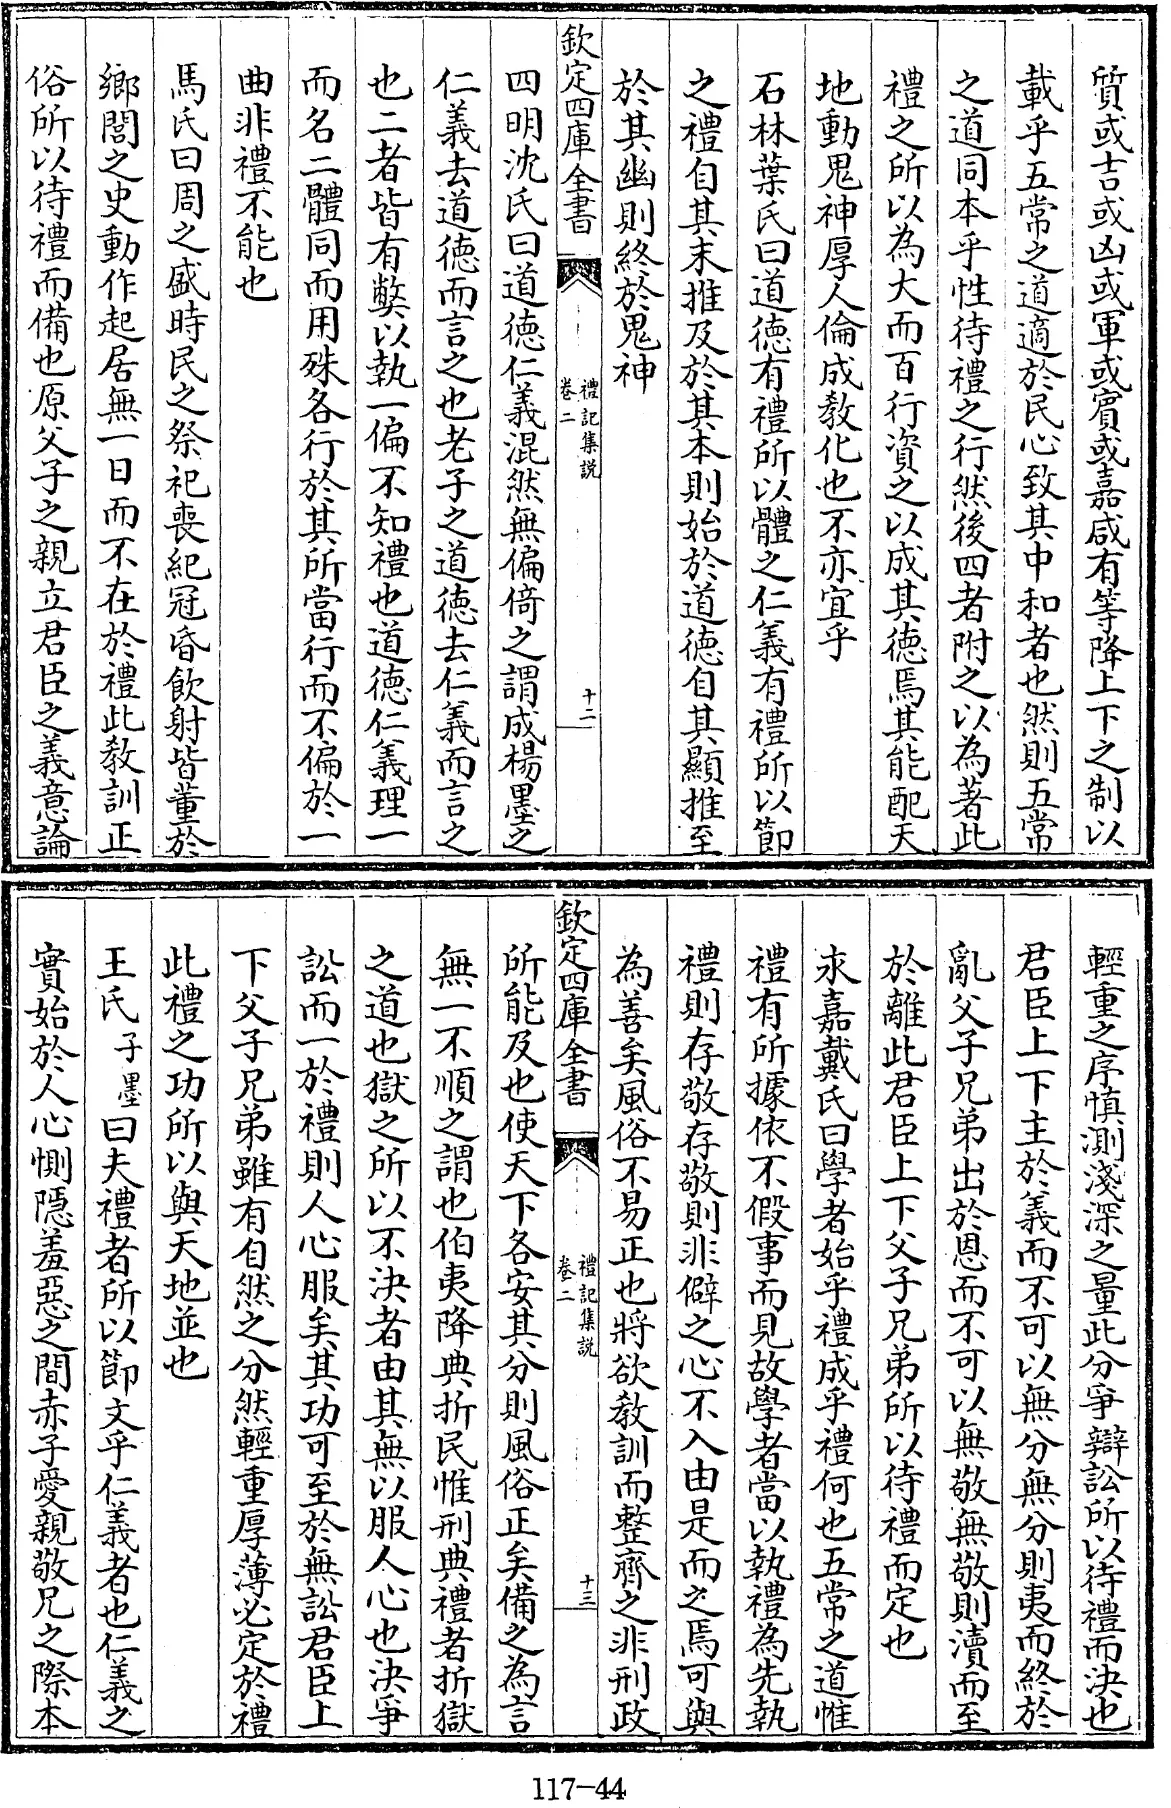 質或吉或凶或軍或賓或嘉咸有等降上下之制以
載乎五常之道適於民心致其中和者也然則五常
之道同本乎性待禮之行然後四者附之以為著此
禮之所以為大而百行資之以成其德焉其能配天
地動鬼神厚人倫成教化也不亦宜乎
石林葉氏曰道德有禮所以體之仁義有禮所以節
之禮自其末推及於其本則始於道德自其顯推至
於其幽則終於鬼神
欽定四庫全書
禮記集說
卷二
十二
四明沈氏曰道德仁義混然無偏倚之謂成楊墨之
仁義去道德而言之也老子之道德去仁義而言之
也二者皆有弊以執一偏不知禮也道德仁義理一
而名二體同而用殊各行於其所當行而不偏於一
曲非禮不能也
馬氏曰周之盛時民之祭祀喪紀冠昏飲射皆董於
鄉閭之史動作起居無一日而不在於禮此教訓正
俗所以待禮而備也原父子之親立君臣之義意論
輕重之序慎測淺深之量此分爭辯訟所以待禮而決也
君臣上下主於義而不可以無分無分則夷而終於
亂父子兄弟出於恩而不可以無敬無敬則瀆而至
於離此君臣上下父子兄弟所以待禮而定也
求嘉戴氏曰學者始乎禮成乎禮何也五常之道惟
禮有所據依不假事而見故學者當以執禮為先執
禮則存敬存敬則非僻之心不入由是而之焉可與
為善矣風俗不易正也將欲教訓而整齊之非刑政
欽定四庫全書
禮記集說
卷二
十三
所能及也使天下各安其分則風俗正矣備之為言
無一不順之謂也伯夷降典折民惟刑典禮者折獄
之道也獄之所以不決者由其無以服人心也決爭
訟而一於禮則人心服矣其功可至於無訟君臣上
下父子兄弟雖有自然之分然輕重厚薄必定於禮
此禮之功所以與天地並也
王氏子墨曰夫禮者所以節文乎仁義者也仁義之
實始於人心惻隱羞惡之間赤子愛親敬兄之際本
117-44